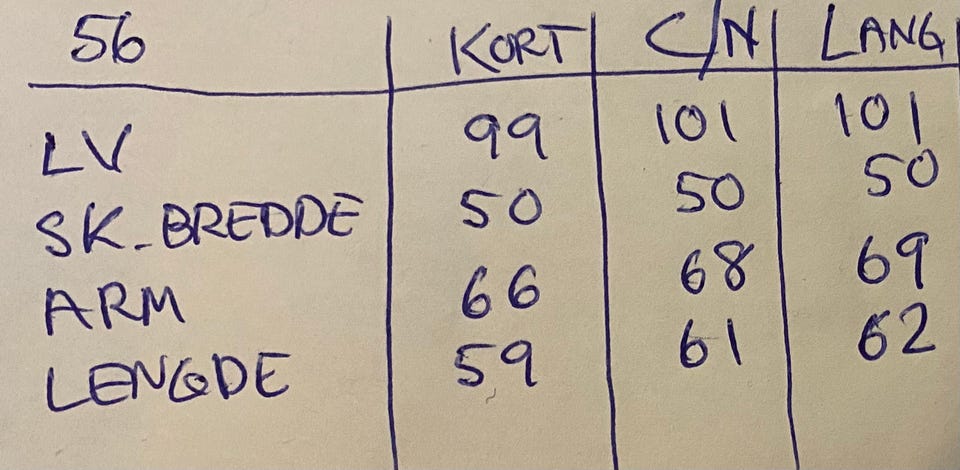 56 KORT C/N LANG
LV 99 101 101
SK. BREDDE 50 50 50
ARM 66 68 69
LENGDE 59 61 62